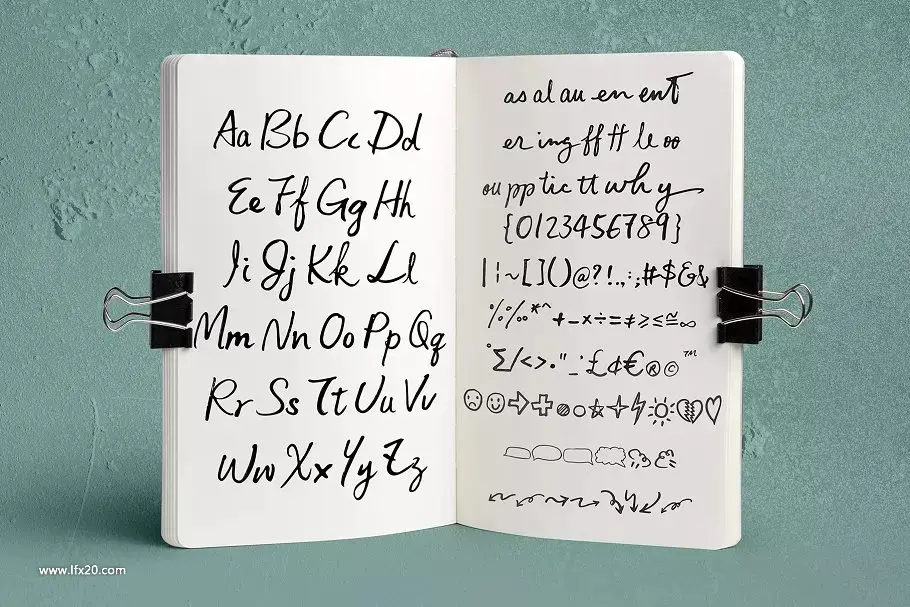 Aa Bb Cc Dd
Ee Ff Gg Hh
Ii Jj Kk Ll
Mm Nn Oo Pp Qq
Rr Ss Tt Uu Vv
Ww Xx Yy Zz
as al au en ent
er ing ff tt le oo
ou pp tic tt why
{0123456789}
|¦~[]()@?!.,:;#$&
%‰*^+–×÷=≠≥≤≅∞
°∑/<>•"_·£¢€®©™
☹☺⇨✚
www.lfx20.com